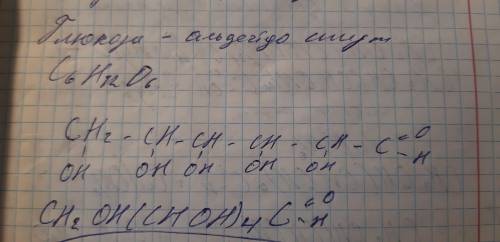 Глюкоза - альдегидо спирт
C₆H₁₂O₆
CH₂ - CH - CH - CH - CH - C =O -H
OH OH OH OH OH
CH₂OH(CHOH)₄ C =O -H